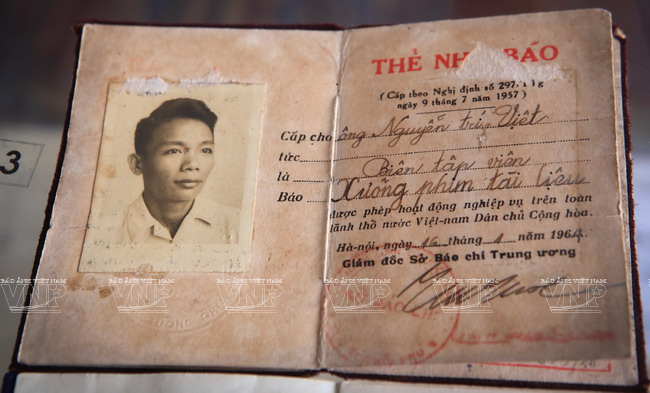 3
THẺ NHÀ BÁO
( Cấp theo Nghị định số 297
ngày 9 tháng 7 năm 1957 )
Cấp cho ông Nguyễn Việt
tức
là Biên tập viên
Báo Xưởng phim tài liệu
được phép hoạt động nghiệp vụ trên toàn
lãnh thổ nước Việt-nam Dân chủ Cộng hòa.
Hà-nội, ngày 16 tháng 1 năm 196
Giám đốc Sở Báo chí Trung ương
BÁO ẢNH VIỆT NAM BÁO ẢNH VIỆT NAM BÁO ẢNH VIỆT NAM BÁO ẢNH VIỆT NAM BÁO ẢNH VIỆT NAM BÁO ẢNH VIỆT NAM
VNP VNP VNP VNP VNP VNP